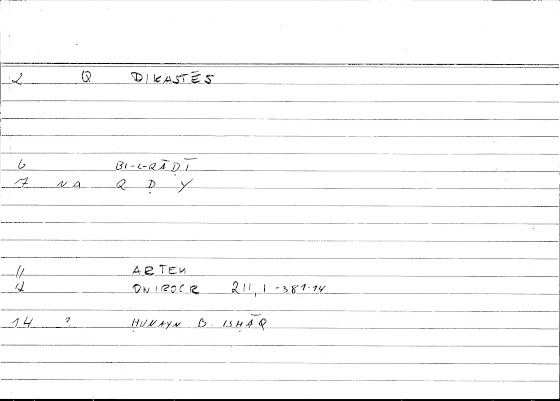 2 Q DIKASTĒS
6 BI-L-QĀḌĪ
7 NA Q Ḍ Y
11 ARTEM
12 ONIROCR 211,1 - 381.14
14 ? ḤUNAYN B. ISḤĀQ